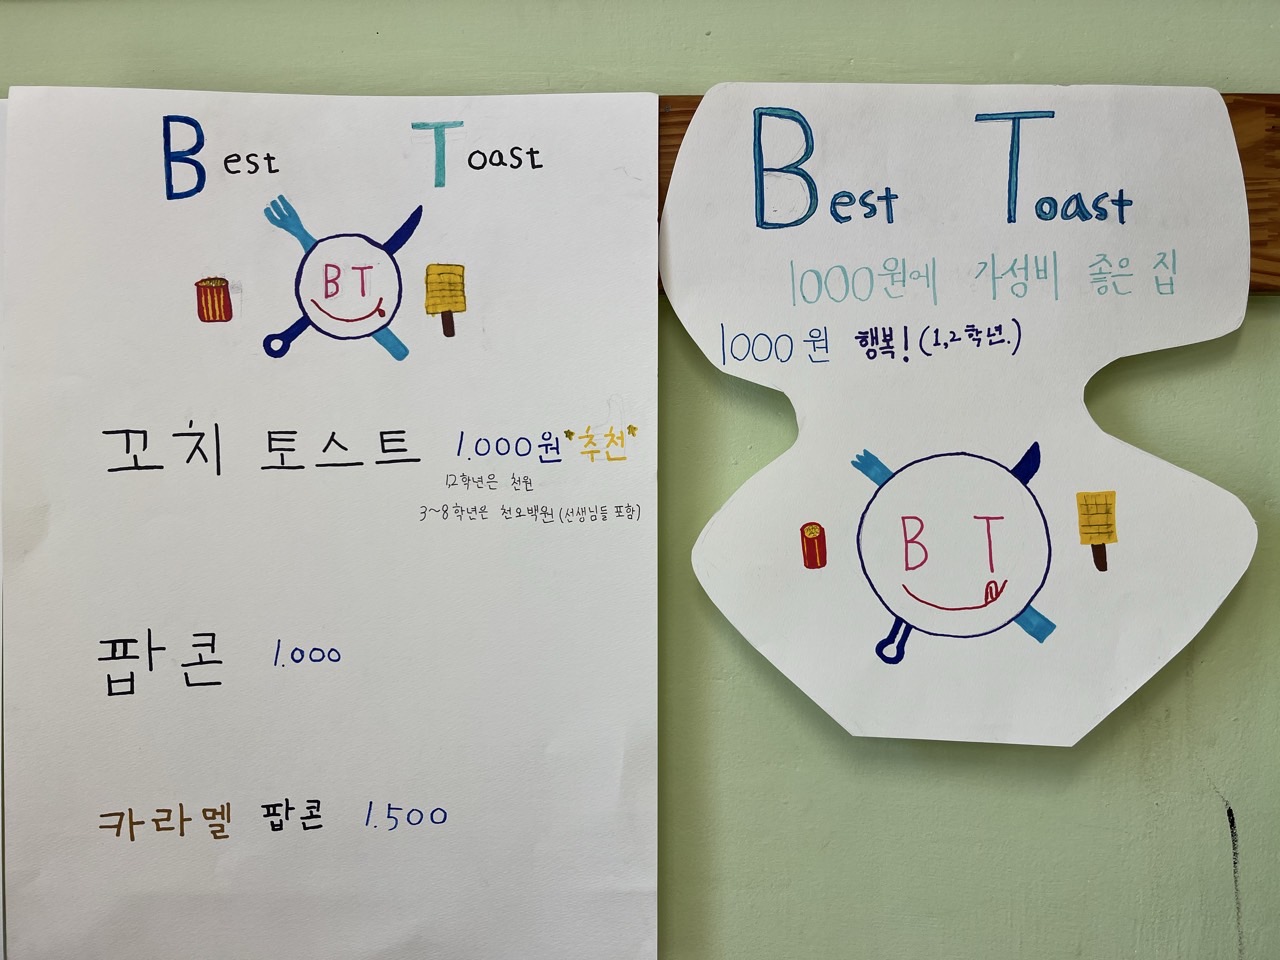 Best Toast
BT
꼬치 토스트 1.000원 *추천*
1,2학년은 천원
3~8학년은 천오백원 (선생님들 포함)
팝콘 1.000
카라멜 팝콘 1.500
Best Toast
1000원에 가성비 좋은 집
1000원 행복! (1,2학년.)
B T